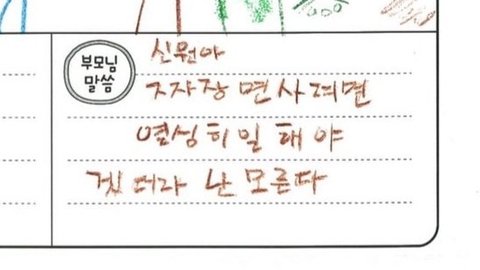 부모님
말씀
신원아
자장면사려면
열심히일해야
겠더라 난 모른다